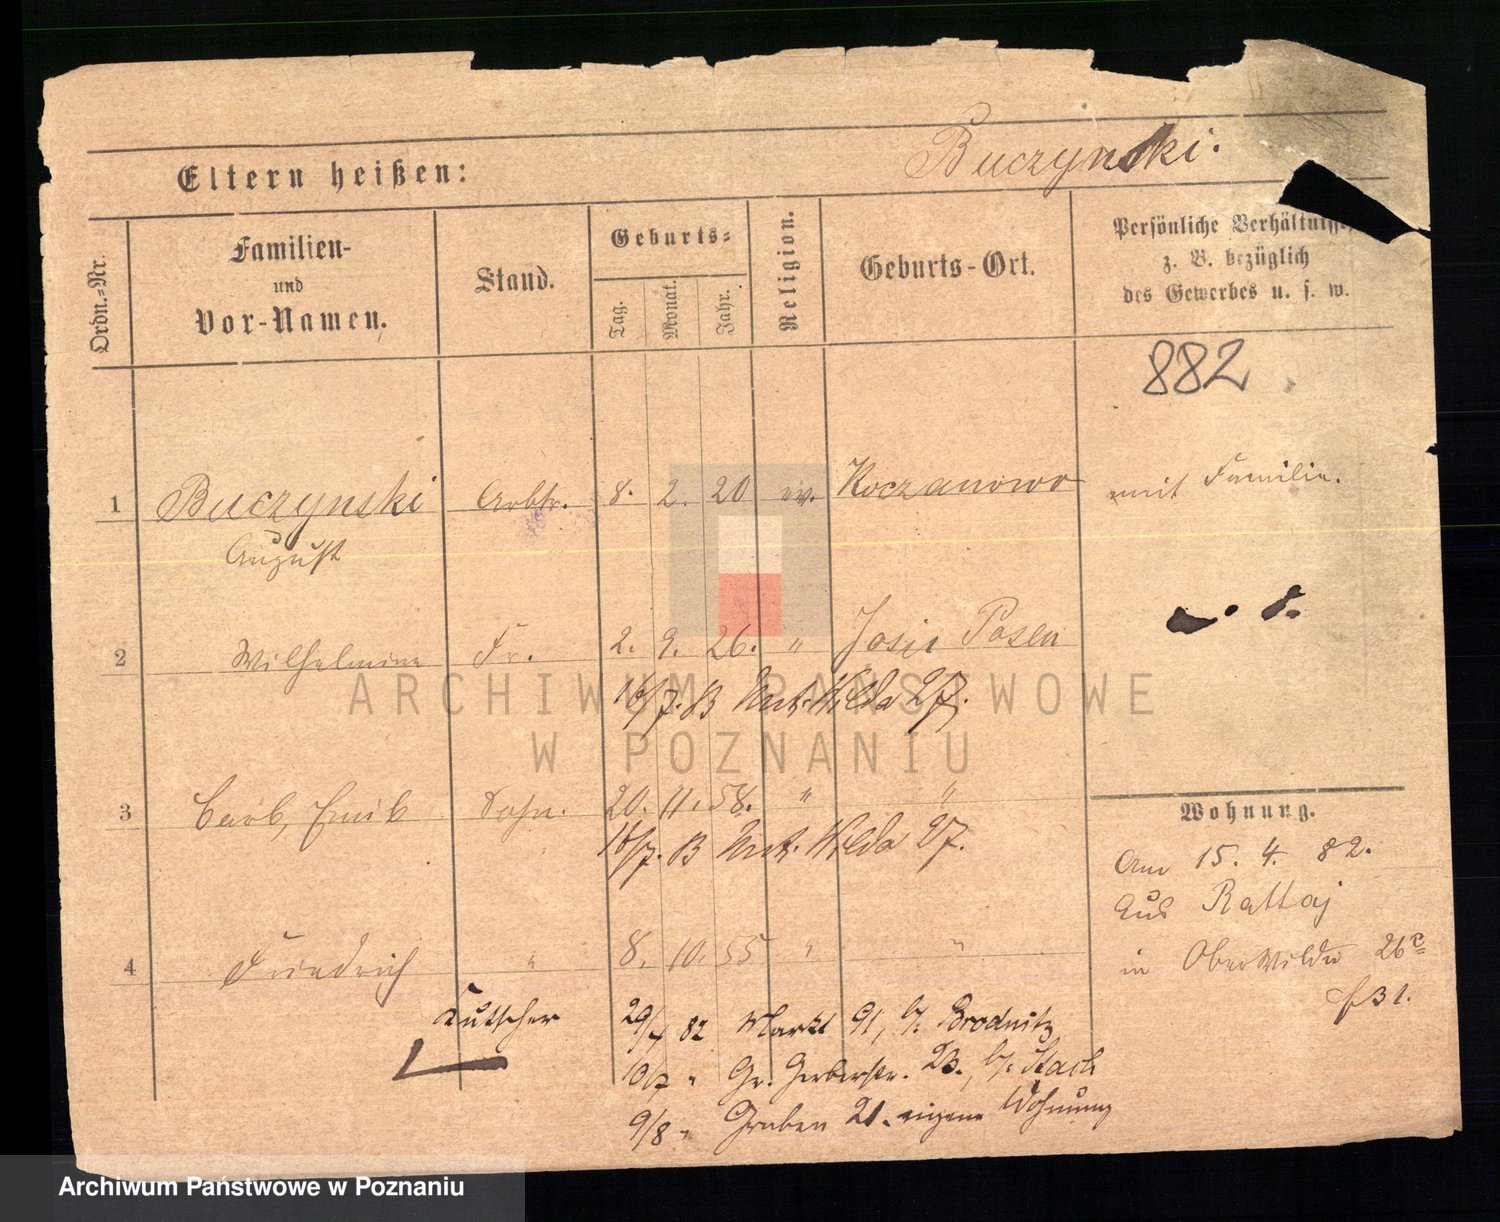 Buczynski.
Eltern heißen:
Ordn.-Nr.
Familien-
und
Vor-Namen.
Stand.
Geburts-
Tag.
Monat.
Jahr.
Religion.
Geburts-Ort.
Persönliche Verhältnisse
z. B. bezüglich
des Gewerbes u. s. w.
882
1 Buczynski Arbtr. 8. 2. 20 ev. Koczanowo mit Familie.
August
2 Wilhelmine Fr. 2. 9. 26. " Posen
16/7. B Unt. Wilda 27.
3 Emil Sohn. 20. 11. 58. " "
16/7. B Unt. Wilda 27.
Wohnung.
Am 15. 4. 82.
Aus Rattaj
in Ober Wilda 26
31.
4 Friedrich " 8. 10. 55 " "
Kutscher 29/4 82 Markt 91, b/. Brodnitz
10/7 " Gr. Gerberstr. 23., b/. Stach
9/8 " Graben 21. eigene Wohnung
ARCHIWUM PAŃSTWOWE
W POZNANIU
Archiwum Państwowe w Poznaniu